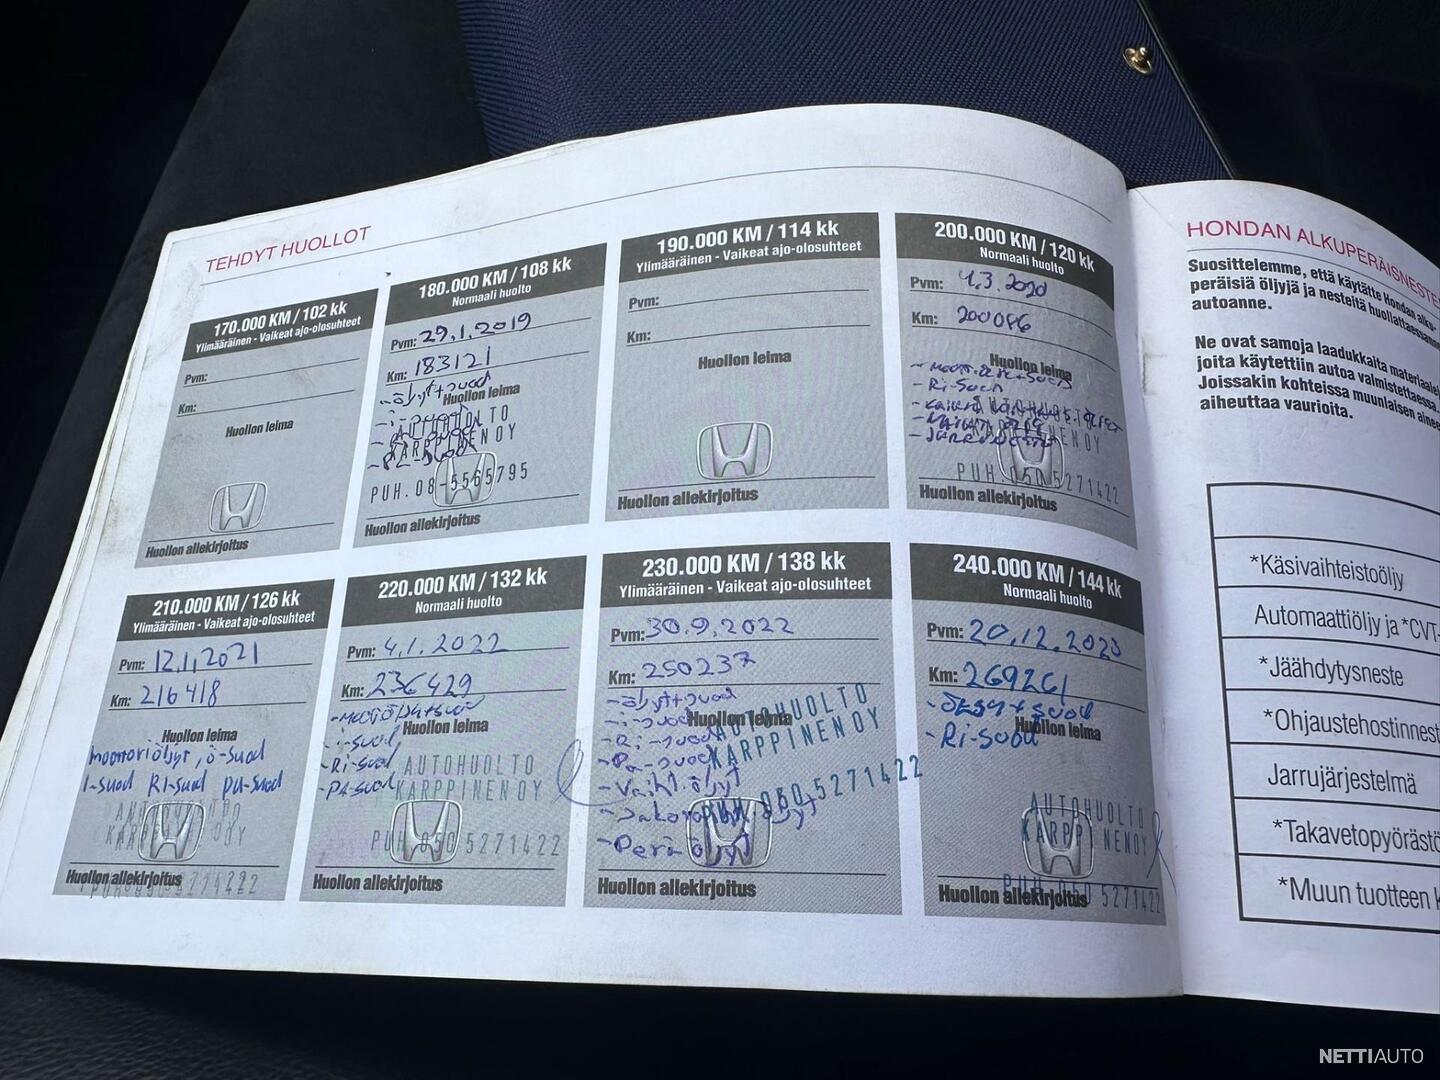 TEHDYT HUOLLOT
170.000 KM / 102 kk
Ylimääräinen - Vaikeat ajo-olosuhteet
Pvm:
Km:
Huollon leima
Huollon allekirjoitus
180.000 KM / 108 kk
Normaali huolto
Pvm: 29.1.2019
Km: 183121
- öljyt+suod
Huollon leima
AUTOHUOLTO
KARPPINEN OY
PUH. 08-5565795
Huollon allekirjoitus
190.000 KM / 114 kk
Ylimääräinen - Vaikeat ajo-olosuhteet
Pvm:
Km:
Huollon leima
Huollon allekirjoitus
200.000 KM / 120 kk
Normaali huolto
Pvm: 4.3.2020
Km: 200086
Huollon leima
- Ri-Suod
AUTOHUOLTO
KARPPINEN OY
PUH. 050 5271422
Huollon allekirjoitus
210.000 KM / 126 kk
Ylimääräinen - Vaikeat ajo-olosuhteet
Pvm: 12.1.2021
Km: 216418
Huollon leima
moottoriöljyt, ö-suod
I-suod Ri-suod pa-suod
AUTOHUOLTO
KARPPINEN OY
PUH. 050 5271422
Huollon allekirjoitus
220.000 KM / 132 kk
Normaali huolto
Pvm: 4.1.2022
Km: 236429
Huollon leima
- i-suod
- Ri-suod
- Pa-suod
AUTOHUOLTO
KARPPINEN OY
PUH. 050 5271422
Huollon allekirjoitus
230.000 KM / 138 kk
Ylimääräinen - Vaikeat ajo-olosuhteet
Pvm: 30.9.2022
Km: 250237
- öljyt+suod
- i-suod
Huollon leima
- Ri-suod
- Pa-suod
- Vaiht. öljyt
- Perä öljyt
AUTOHUOLTO
KARPPINEN OY
PUH. 050 5271422
Huollon allekirjoitus
240.000 KM / 144 kk
Normaali huolto
Pvm: 20.12.2023
Km: 269261
- öljyt+suod
Huollon leima
- Ri-suod
AUTOHUOLTO
KARPPINEN OY
PUH. 050 5271422
Huollon allekirjoitus
HONDAN ALKUPERÄISNESTE
Suosittelemme, että käytätte Hondan alku-
peräisiä öljyjä ja nesteitä huollattaessanne
autoanne.
Ne ovat samoja laadukkaita materiaaleja
joita käytettiin autoa valmistettaessa.
Joissakin kohteissa muunlaisen aine
aiheuttaa vaurioita.
*Käsivaihteistoöljy
Automaattiöljy ja *CVT-
*Jäähdytysneste
*Ohjaustehostinnest
Jarrujärjestelmä
*Takavetopyörästö
*Muun tuotteen k
NETTIAUTO